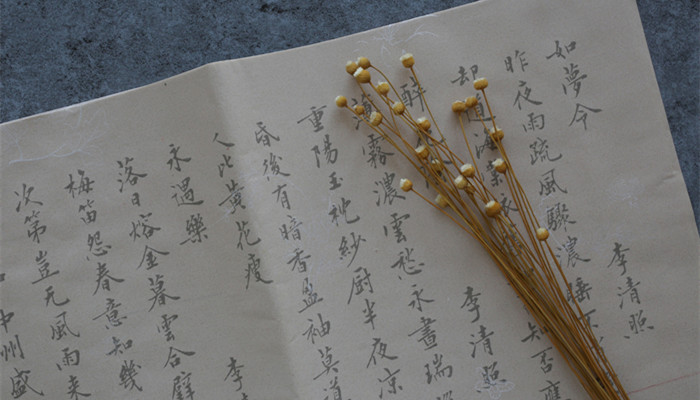 如夢令 李清照
昨夜雨疏風驟濃睡不
却道海棠依 知否應
醉 李清照
薄霧濃雲愁永晝瑞
重陽玉枕紗厨半夜凉
昏後有暗香盈袖莫道
人比黃花瘦
永遇樂 李清
落日熔金暮雲合璧
梅笛怨春意知幾
次第豈无風雨来
中州盛